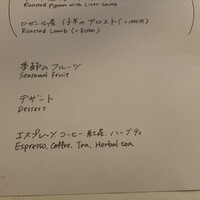 Roasted Pigeon with Liver Sauce
ロゼール産 仔羊のアロスト(+1000円)
Roasted Lamb (+¥1000)
季節のフルーツ
Seasonal Fruit
デザート
Dessert
エスプレッソ、コーヒー、紅茶、ハーブティ
Espresso, Coffee, Tea, Herbal tea